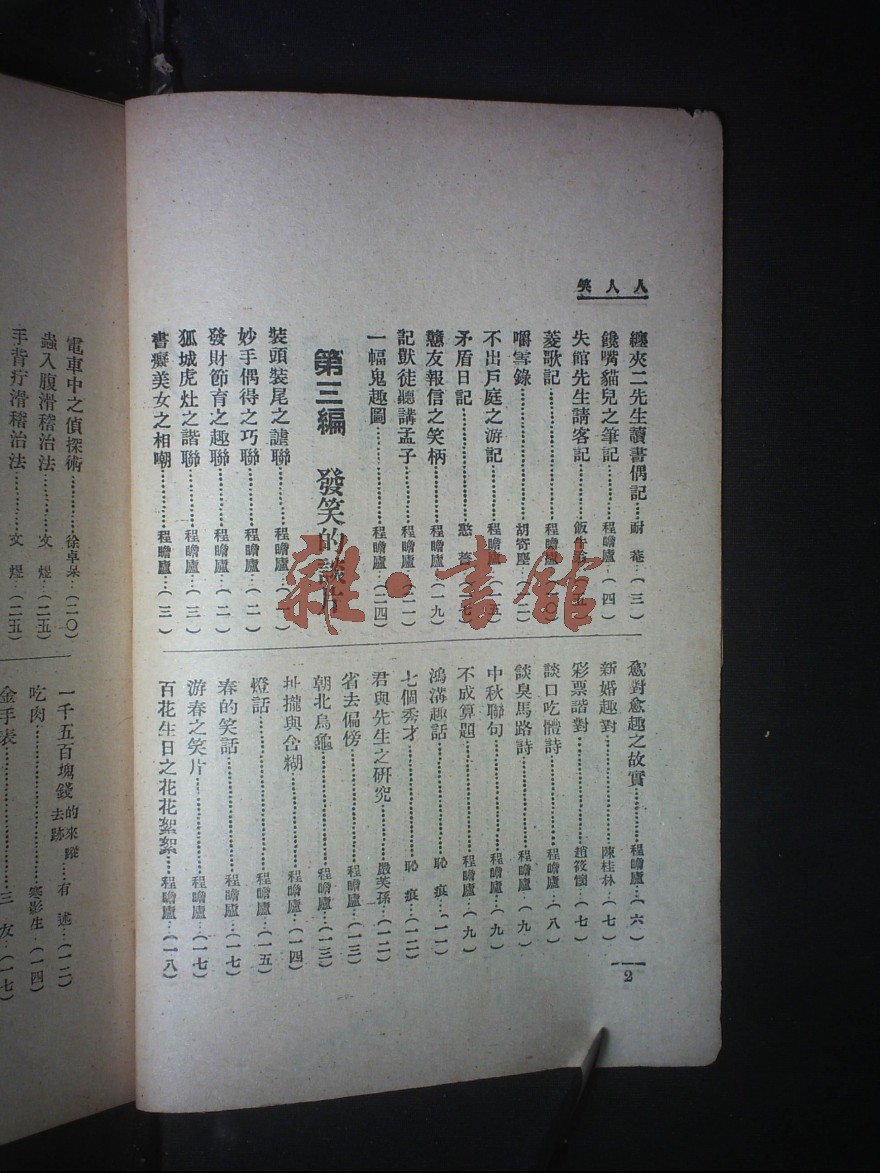 人人笑
纏夾二先生讀書偶記…耐菴…(三)
饞嘴貓兒之筆記…程瞻廬…(四)
失館先生請客記…飯牛
菱歌記…程瞻廬
嚼雪錄…胡寄塵
不出戶庭之游記…程瞻廬
矛盾日記…憨
戇友報信之笑柄…程瞻廬…(一九)
記獃徒聽講孟子…程瞻廬…(二一)
一幅鬼趣圖…程瞻廬…(二四)
第三編 發笑的談片
裝頭裝尾之謔聯…程瞻廬
妙手偶得之巧聯…程瞻廬…(二)
發財節育之趣聯…程瞻廬…(二)
狐城虎灶之諧聯…程瞻廬…(三)
書癡美女之相嘲…程瞻廬…(三)
愈對愈趣之故實…程瞻廬…(六)
新婚趣對…陳桂林…(七)
彩票諧對…趙筱…(七)
談口吃體詩…程瞻廬…(八)
談臭馬路詩…程瞻廬…(九)
中秋聯句…程瞻廬…(九)
不成算題…程瞻廬…(九)
鴻溝趣話…恥痕…(一一)
七個秀才…恥痕…(一二)
君與先生之研究…嚴芙孫…(一二)
省去偏傍…程瞻廬…(一三)
朝北烏龜…程瞻廬…(一三)
扯攏與含糊…程瞻廬…(一四)
燈話…程瞻廬…(一五)
春的笑話…程瞻廬…(一七)
游春之笑片…程瞻廬…(一七)
百花生日之花花絮絮…程瞻廬…(一八)
2
電車中之偵探術…徐卓呆…(二〇)
蟲入腹滑稽治法…文煜…(二五)
手背疔滑稽治法…文煜…(二五)
一千五百塊錢的來蹤去跡…有述…(一二)
吃肉…寒影生…(一四)
金手表…三友…(一七)
雜·書館